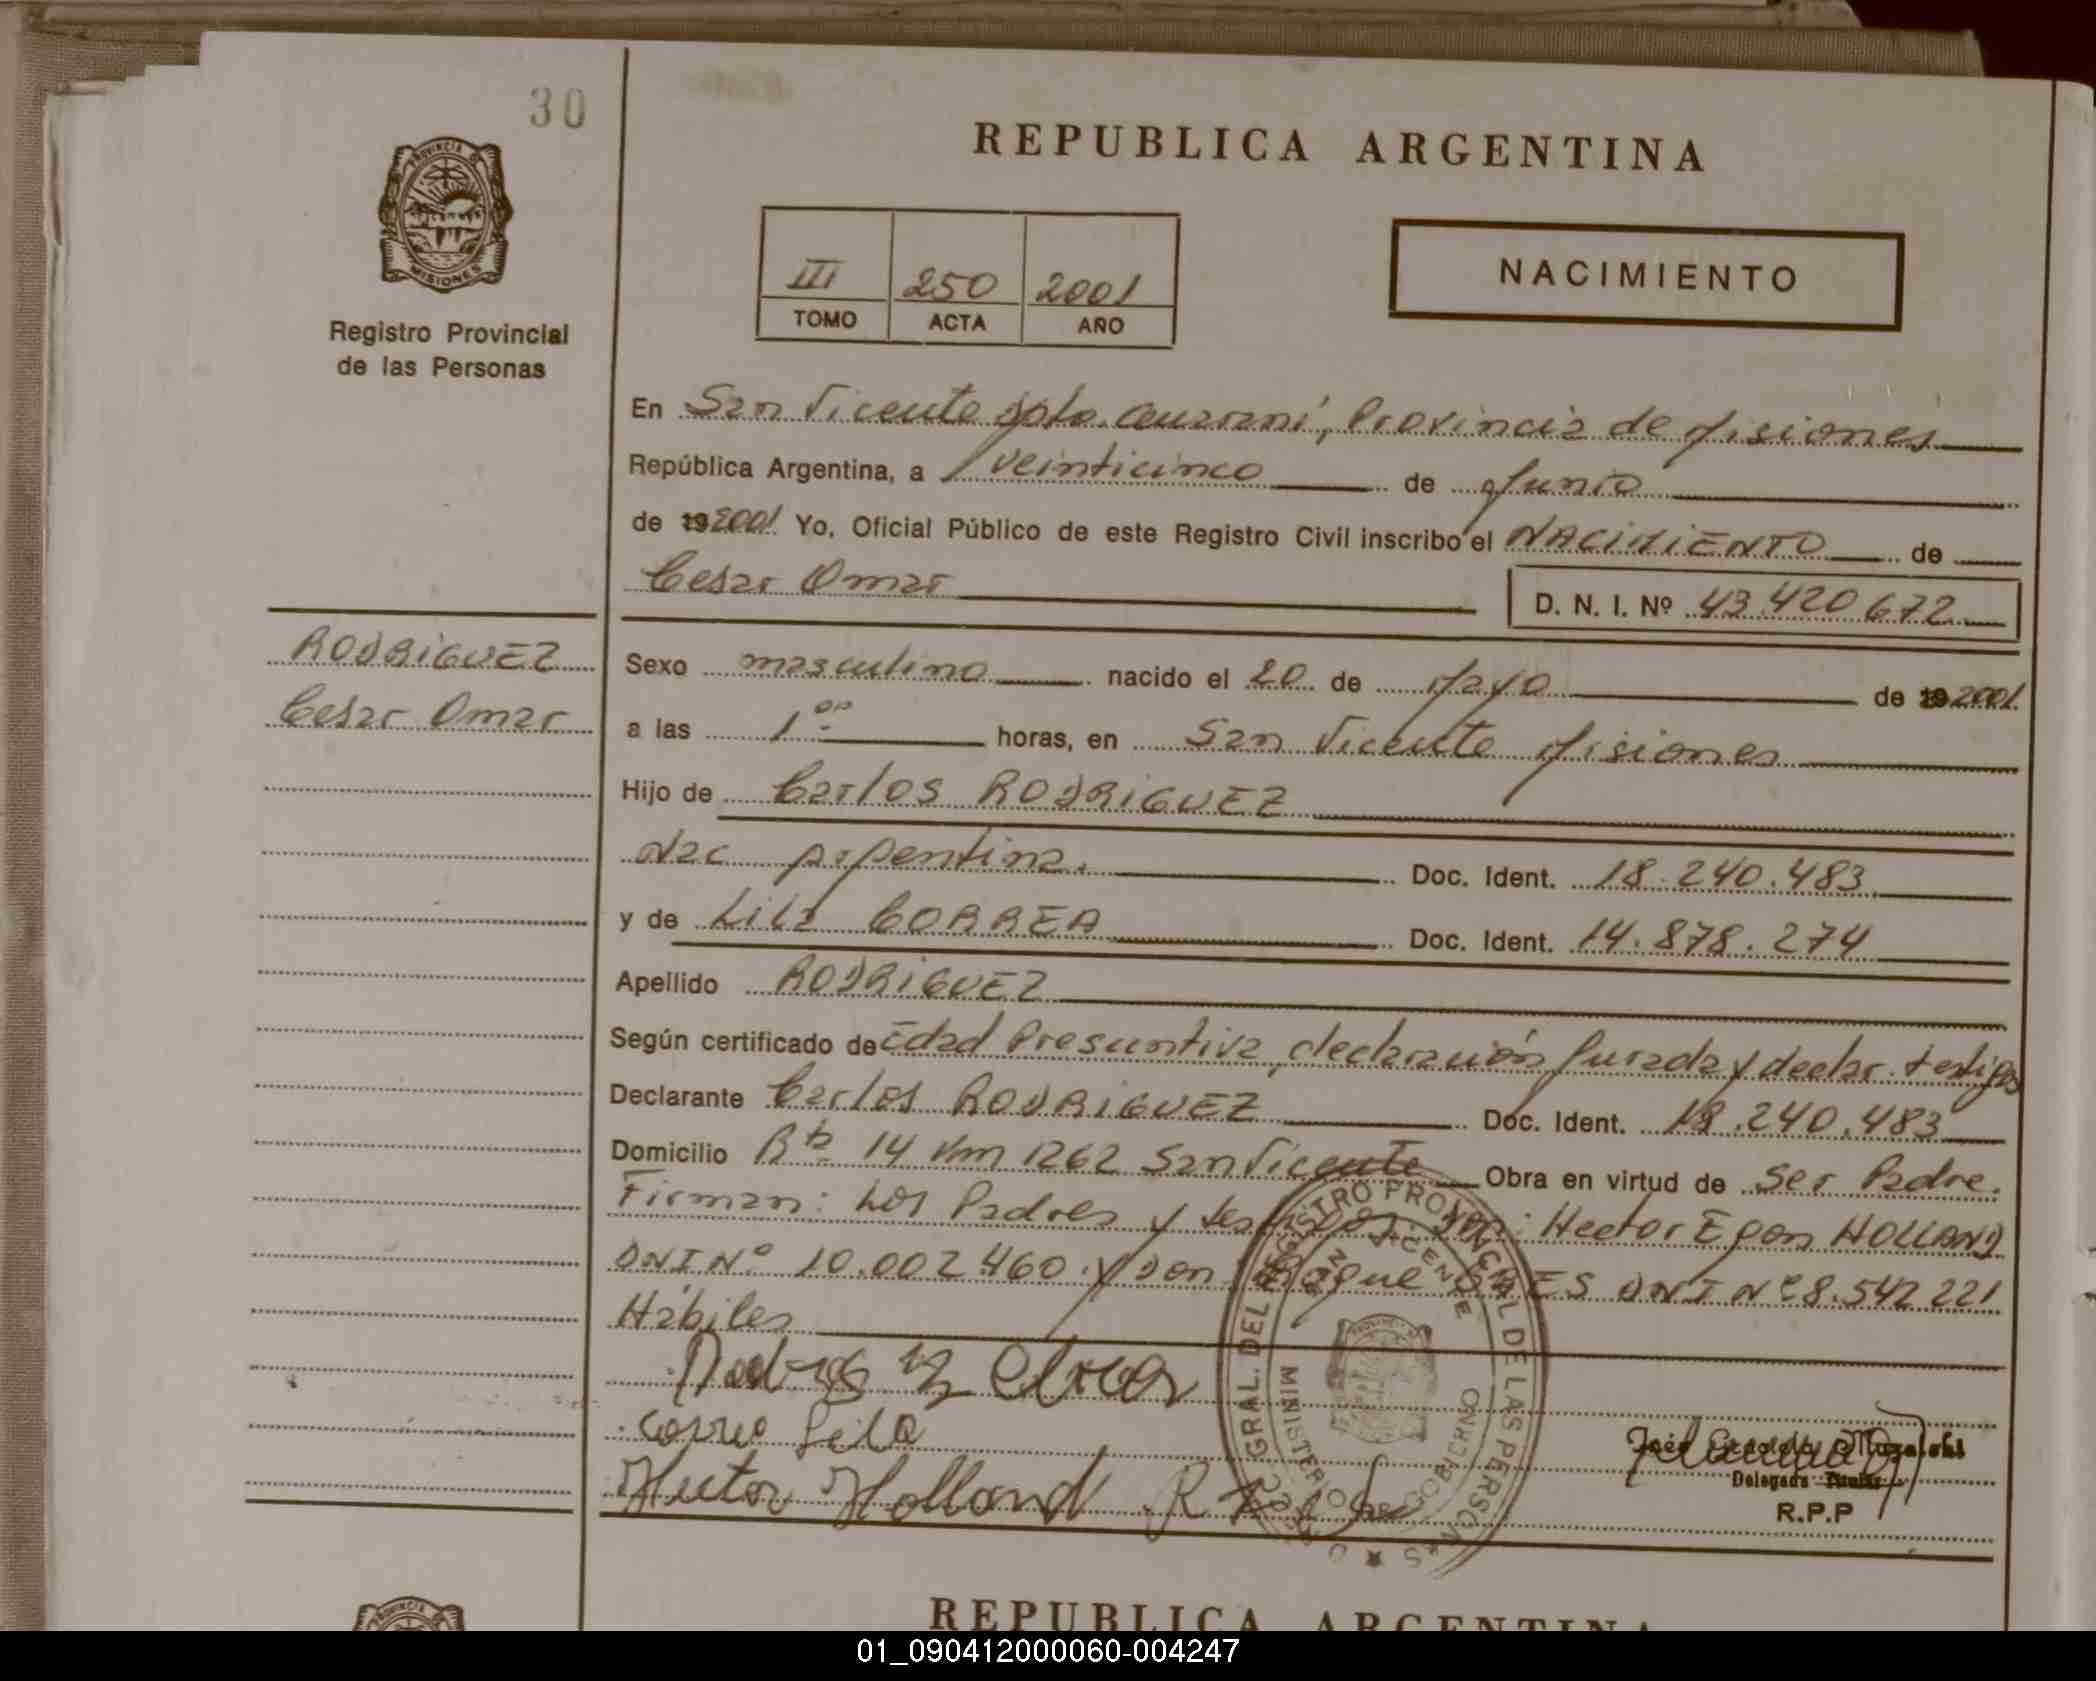 30
PROVINCIA DE
MISIONES
Registro Provincial
de las Personas
REPUBLICA ARGENTINA
III 250 2001
TOMO ACTA AÑO
NACIMIENTO
En San Vicente dpto. Guaraní, Provincia de Misiones
República Argentina, a veinticinco de Junio
de 192001 Yo, Oficial Público de este Registro Civil inscribo el NACIMIENTO de
Cesar Omar D. N. I. Nº 43.420672
RODRIGUEZ
Cesar Omar
Sexo masculino nacido el 20 de Mayo de 192001.
a las 1 00 horas, en San Vicente Misiones
Hijo de Carlos RODRIGUEZ
Nac Argentina. Doc. Ident. 18.240.483
y de Lila CORREA Doc. Ident. 14.878.274
Apellido RODRIGUEZ
Según certificado de Edad Presuntiva, declaración Jurada y declar. testigos
Declarante Carlos RODRIGUEZ Doc. Ident. 18.240.483
Domicilio Rta 14 Km 1262 San Vicente Obra en virtud de Ser Padre.
Firman: Los Padres y testigos: Don: Hector Egon HOLLAND
DNI Nº 10.002460 y Don DNI Nº 8.542221
Hábiles
Correa Lila
Hector Holland
GRAL. DEL REGISTRO PROVINCIAL DE LAS PERSONAS
SAN VICENTE
MINISTERIO DE GOBIERNO
Delegado Titular
R.P.P
REPUBLICA ARGENTINA
01_090412000060-004247